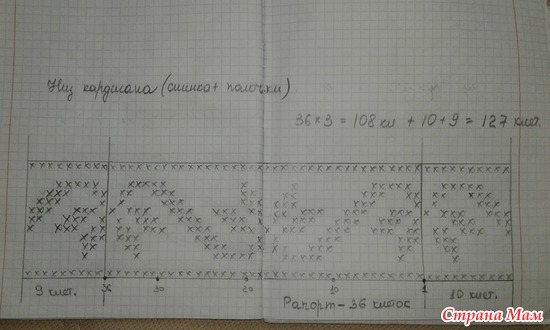 Низ кардигана (спинка + полочки)
36 x 3 = 108 кл. + 10 + 9 = 127 клет.
9 клет. 30 20 10 1 10 клет.
Рапорт - 36 клеток
Страна Мам